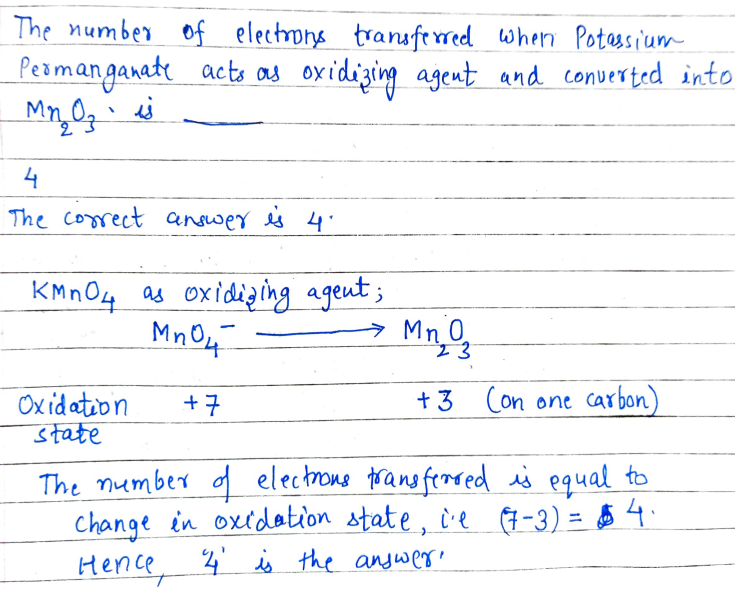 The number of electrons transferred when Potassium
Permanganate acts as oxidizing agent and converted into
Mn₂O₃ is ____
4
The correct answer is 4.
KMnO₄ as oxidizing agent;
MnO₄⁻ ⟶ Mn₂O₃
Oxidation +7 +3 (on one carbon)
state
The number of electrons transferred is equal to
change in oxidation state, i.e (7-3) = 4.
Hence, '4' is the answer.